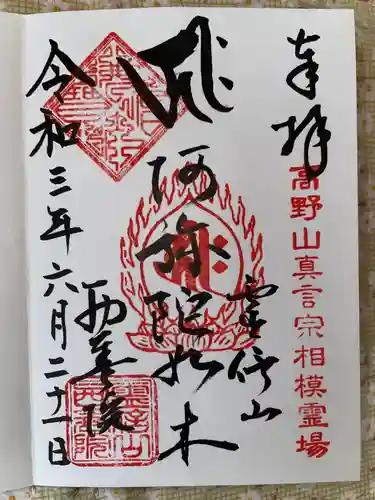 奉拝
高野山真言宗相模霊場
霊信山
阿弥陀如来
西華院
令和三年六月二十一日